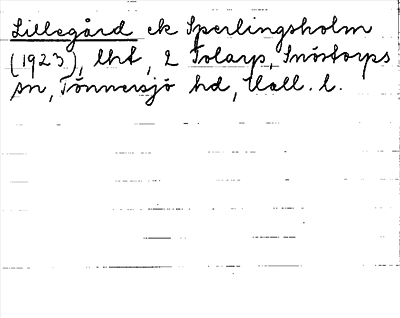 Lillegård ek Sperlingsholm
(1923), lht, 2 Tolarp, Snöstorps
sn, Tönnersjö hd, Hall. l.